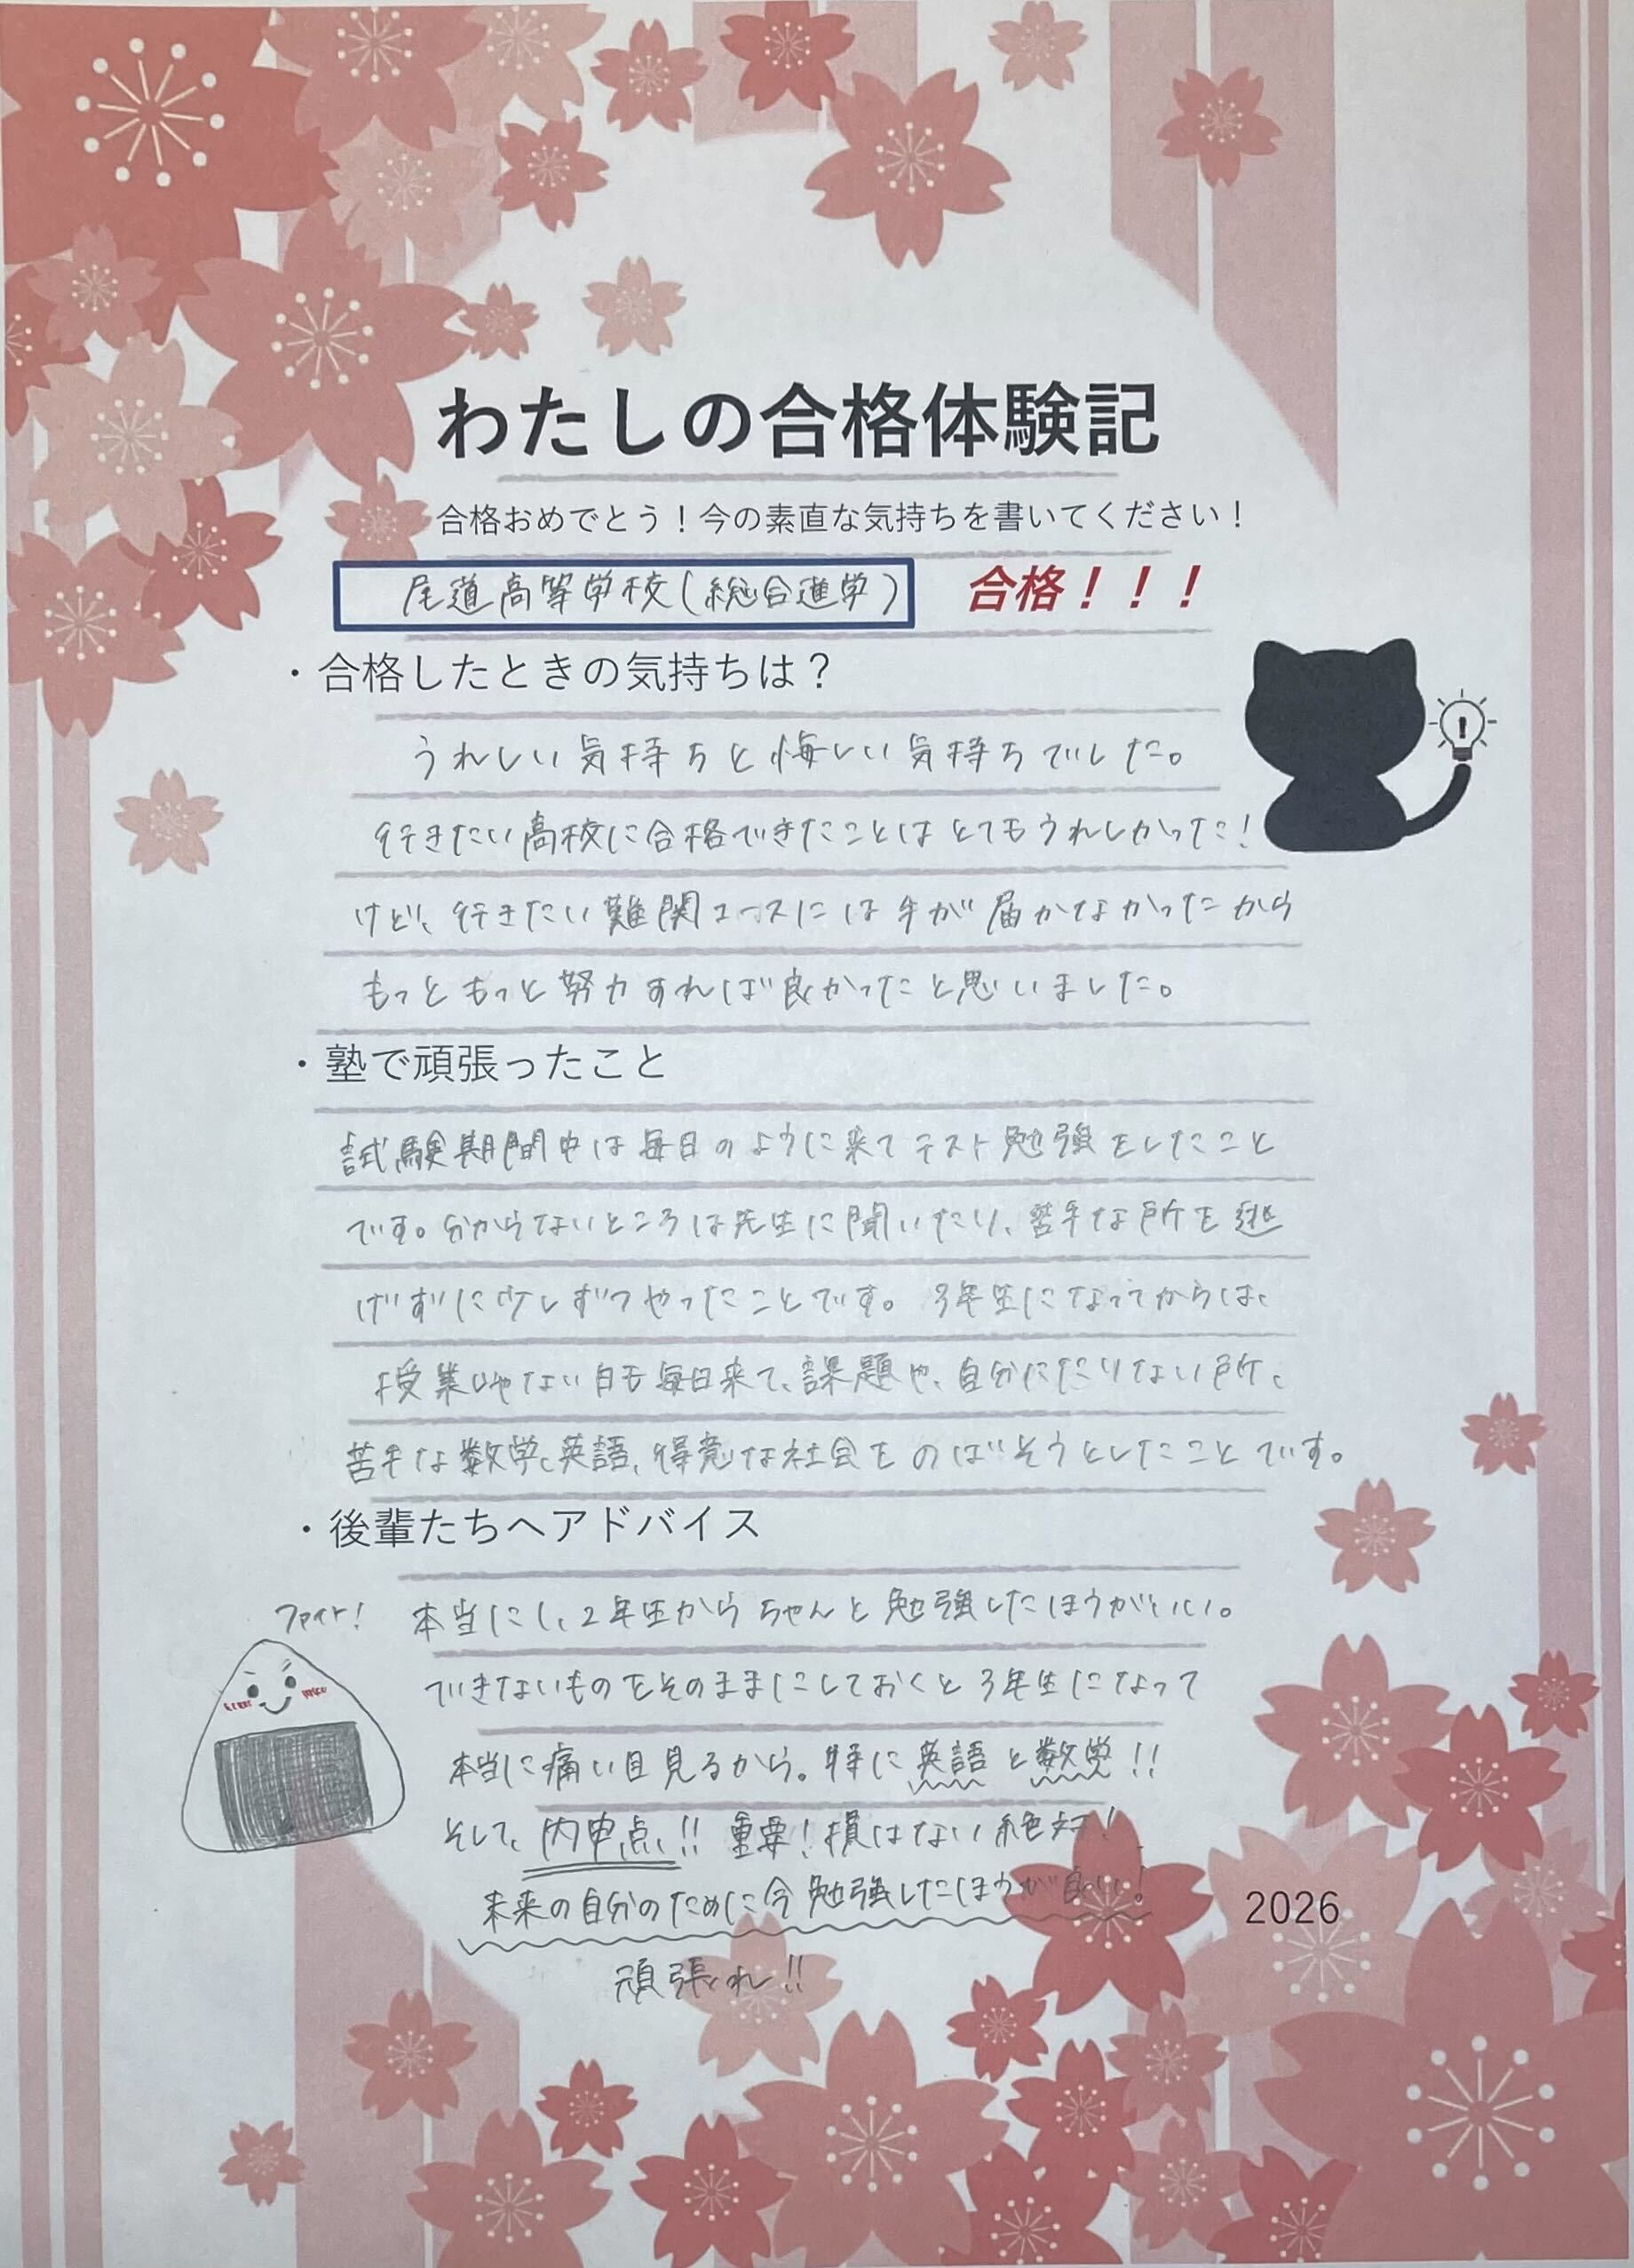 わたしの合格体験記
合格おめでとう！今の素直な気持ちを書いてください！
尾道高等学校(総合進学)
合格！！！
・合格したときの気持ちは？
うれしい気持ちと悔しい気持ちでした。
行きたい高校に合格できたことはとてもうれしかった！
けど、行きたい難関コースには手が届かなかったから
もっともっと努力すれば良かったと思いました。
・塾で頑張ったこと
試験期間中は毎日のように来てテスト勉強をしたこと
です。分からないところは先生に聞いたり、苦手な所を逃
げずに少しずつやったことです。3年生になってからは、
授業じゃない日も毎日来て、課題や、自分にたりない所、
苦手な数学、英語、得意な社会をのばそうとしたことです。
・後輩たちへアドバイス
ファイト！
本当に1、2年生からちゃんと勉強したほうがいい。
できないものをそのままにしておくと3年生になって
本当に痛い目見るから。特に英語と数学!!
そして、内申点!! 重要！損はない絶対！
未来の自分のために今勉強したほうが良い！
2026
頑張れ!!